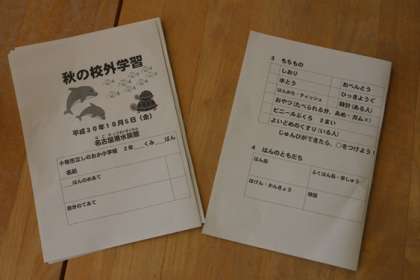 秋の校外学習
平成30年10月5日(金)
名古屋港水族館
小牧市立しのおか小学校 2年___くみ___ぱん
名前
___はんのめあて
自分のめあて
3 もちもの
しおり
おべんとう
水とう
ひっきようぐ
はんかち・ティッシュ
時計(ある人)
おやつ(たべられる分、あめ・ガム×)
ビニールぶくろ 2まい
よいどめのくすり(いる人)
じゅんびができたら、○をつけよう!
4 はんのともだち
はん長
ふくはん長・せいりゅう
ほけん・かんきょう